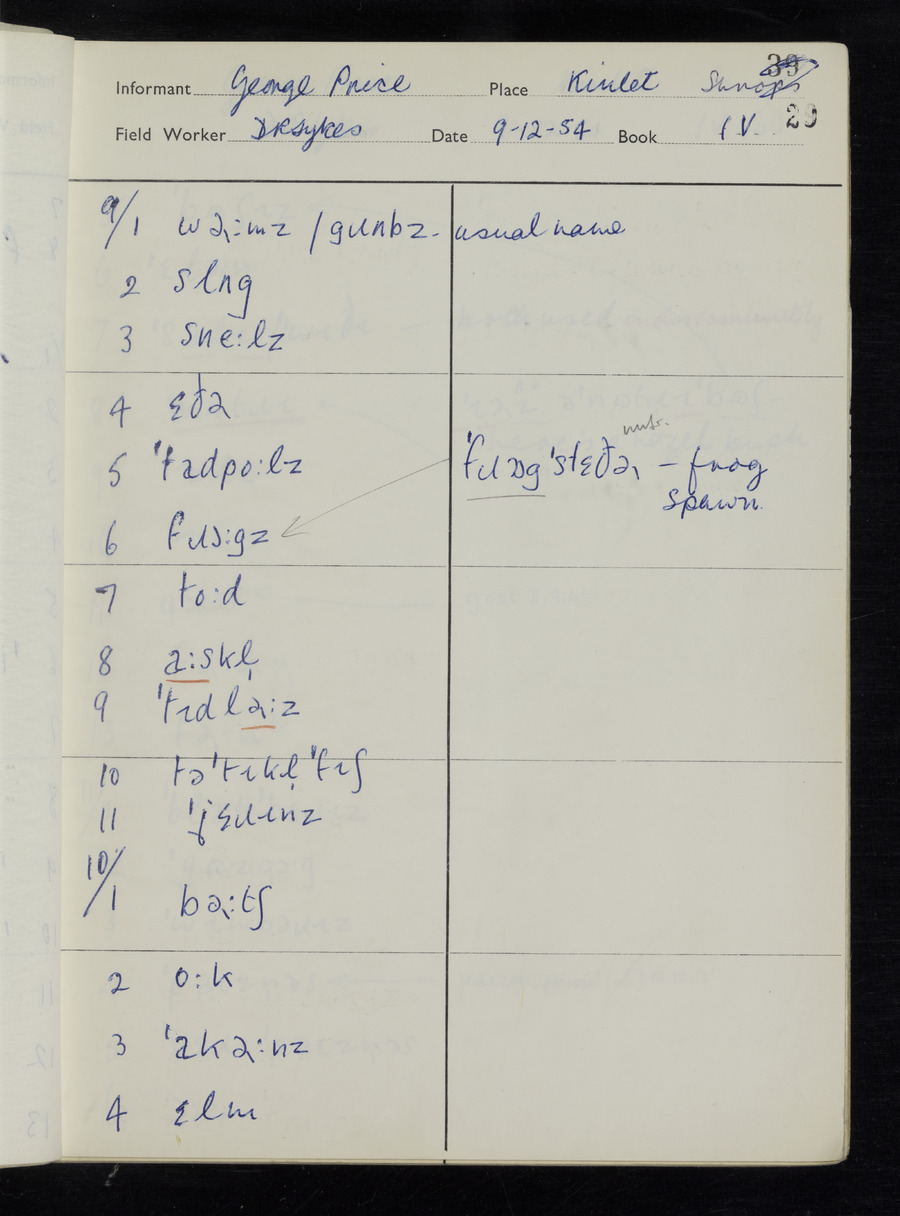 39
Informant George Price Place Kinlet Shrops
29
Field Worker DRSykes Date 9-12-54 Book IV.
9/1 wəɹ:mz / gɹʌnbz - usual name
2 slʌg
3 sne:lz
4 ɛðə
5 'tadpo:lz 'fɹɒg 'stɛðəɹ — frog
spawn.
6 fɹɔ:gz
7 to:d
8 a:skl̩
9 'tɪdləɹ:z
10 tə 'tɪkl̩ 'tɪʃ
11 'jɛɹɪnz
10/
1 bəɹ:tʃ
2 o:k
3 'akəɹ:nz
4 ɛlm